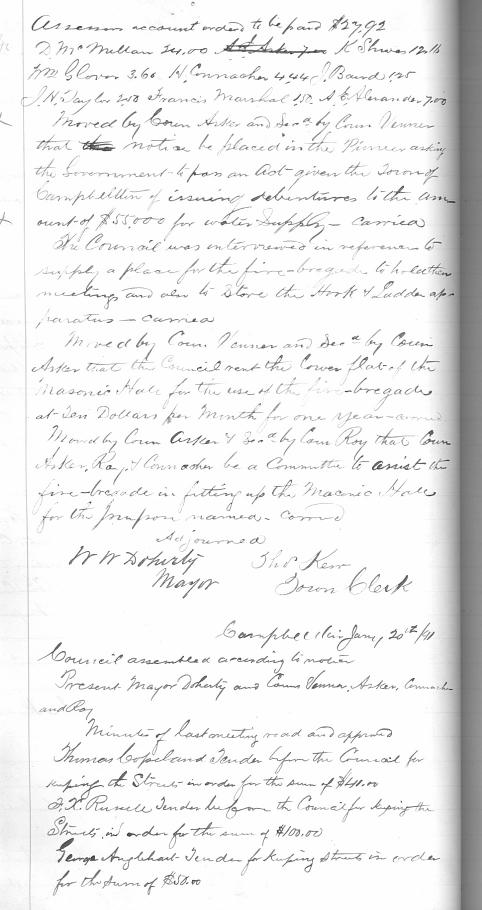 Assessors account orderd to be paid $27.92
D. McMillan 24.00 K Shives 12.16
Wm Glover 3.60 H. Connacher 4.44 J. Baird 1.25
J. H. Taylor 2.50 Francis Marshal 1.50 A. E. Alexander 7.00
Moved by Coun Asker and Secd by Coun Venner
that notice be placed in the Pioneer asking
the Government to pass an Act given the Town of
Campbellton of issuing debentures to the am-
ount of $55,000 for water Supply - carried
The Council was interviewed in reference to
supply a place for the fire-bregade to hold their
meetings and also to Store the Hook & Ladder ap-
paratus - carried
Moved by Coun Venner and Secd by Coun
Asker that the Council rent the Lower flat of the
Masonic Hall for the use of the fire-bregade
at Ten Dollars per Month for one year - carried
Moved by Coun Asker & Secd by Coun Roy that Coun
Asker, Roy, & Connacher be a Committe to assist the
fire-bregade in fitting up the Maconic Hall
for the purpose named - carried
Adjourned
W W Doherty Thos Kerr
Mayor Town Clerk
Campbellton Jany 20th/91
Council assembled according to notice
Present Mayor Doherty and Couns Venner, Asker, Connacher
and Roy
Minutes of last meeting read and approved
Thomas Copeland Tender before the Council for
keeping the Streets in order for the sum of $40.00
Russell Tender before the Council for keeping the
Streets in order for the sum of $100.00
George Anglehart Tender for keeping streets in order
for the sum of $50.00